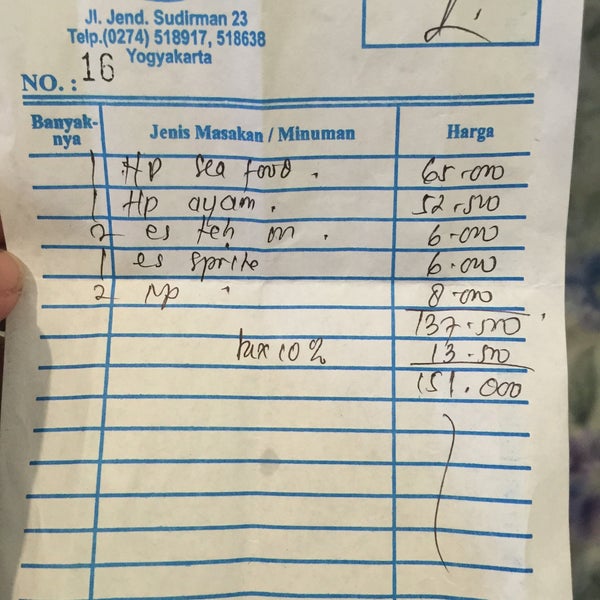 Jl. Jend. Sudirman 23
Telp.(0274) 518917, 518638
Yogyakarta
NO. : 16
Banyak-nya Jenis Masakan / Minuman Harga
1 Hp sea food . 65.000
1 Hp ayam . 52.500
2 es teh m . 6.000
1 es sprite 6.000
2 Np 8.000
137.500
tax 10% 13.500
151.000